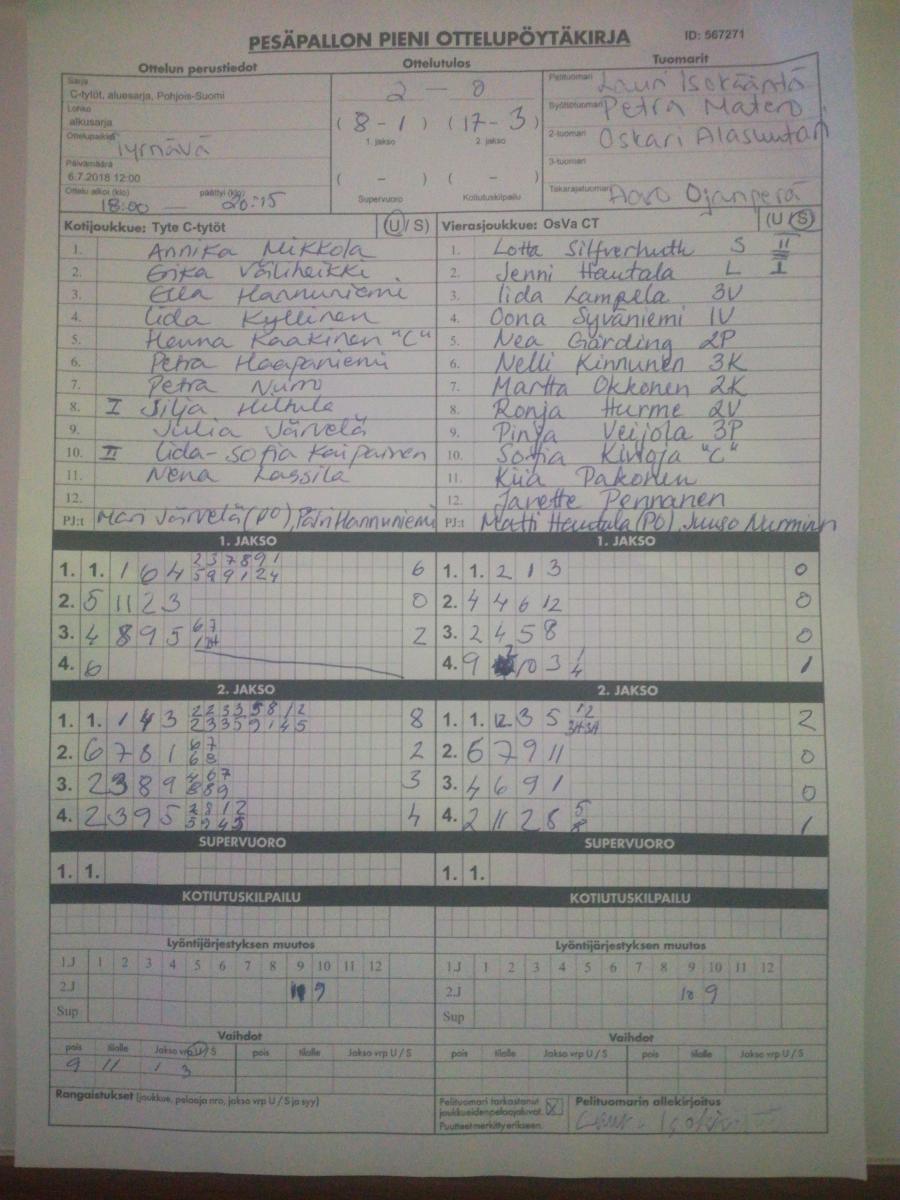 PESÄPALLON PIENI OTTELUPÖYTÄKIRJA ID: 567271
Ottelun perustiedot Ottelutulos Tuomarit
Sarja
C-tytöt, aluesarja, Pohjois-Suomi
Lohko
alkusarja
Ottelupaikka Tyrnävä
Päivämäärä
6.7.2018 12:00
Ottelu alkoi (klo) päättyi (klo)
18:00 — 20:15
2 — 0
( 8 - 1 ) ( 17 - 3 )
1. jakso 2. jakso
( - ) ( - )
Supervuoro Kotiutuskilpailu
Pelituomari Lauri Isokääntä
Syöttötuomari Petra Matero
2-tuomari Oskari
3-tuomari
Takarajatuomari Ojanperä
Kotijoukkue: Tyte C-tytöt (U / S)
1. Annika Mikkola
2. Erika Väliheikki
3. Ella Hannuniemi
4. Iida Kyllinen
5. Henna Kaakinen "C"
6. Petra Haapaniemi
7. Petra Nurro
8. I Silja Hiltula
9. Julia Järvelä
10. II Iida-Sofia Karpainen
11. Nena Lassila
12.
PJ:t Mari Järvelä (PO), Päivi Hannuniemi
Vierasjoukkue: OsVa CT (U / S)
1. Lotta Silfverhuth S II
2. Jenni Hautala L I
3. Iida Lampela 3V
4. Oona Syväniemi 1V
5. Nea Gärding 2P
6. Nelli Kinnunen 3K
7. Martta Okkonen 2K
8. Ronja Hurme 2V
9. Pinja Veijola 3P
10. Sofia "C"
11. Kiia Pakonen
12. Janette Pennanen
PJ:t Matti Hautala (PO), Juuso Nurminen
1. JAKSO 1. JAKSO
1. 1. 1 6 4 2 3 7 8 9 1 6 1. 1. 2 1 3 0
5 9 9 1 2 4
2. 5 11 2 3 0 2. 4 4 6 12 0
3. 4 8 9 5 6 7 2 3. 2 4 5 8 0
4. 6 4. 9 10 3 1 1
4
2. JAKSO 2. JAKSO
1. 1. 1 4 3 2 2 3 3 5 8 1 2 8 1. 1. 12 3 5 12 2
2 3 3 5 9 1 4 5
2. 6 7 8 1 6 7 2 2. 6 7 9 11 0
6 8
3. 2 3 8 9 4 6 7 3 3. 4 6 9 1 0
8 8 9
4. 2 3 9 5 2 8 1 2 4 4. 2 11 2 8 5 1
5 9 4 5 8
SUPERVUORO SUPERVUORO
1. 1. 1. 1.
KOTIUTUSKILPAILU KOTIUTUSKILPAILU
Lyöntijärjestyksen muutos Lyöntijärjestyksen muutos
1.J 1 2 3 4 5 6 7 8 9 10 11 12 1.J 1 2 3 4 5 6 7 8 9 10 11 12
2.J 9 2.J 10 9
Sup Sup
Vaihdot Vaihdot
pois tilalle Jakso vrp U / S pois tilalle Jakso vrp U / S pois tilalle Jakso vrp U / S pois tilalle Jakso vrp U / S
9 11 1 3
Rangaistukset (joukkue, pelaaja nro, jakso vrp U / S ja syy)
Pelituomari tarkastanut
joukkueiden pelaajaluvat.
Puutteet merkitty erikseen.
Pelituomarin allekirjoitus